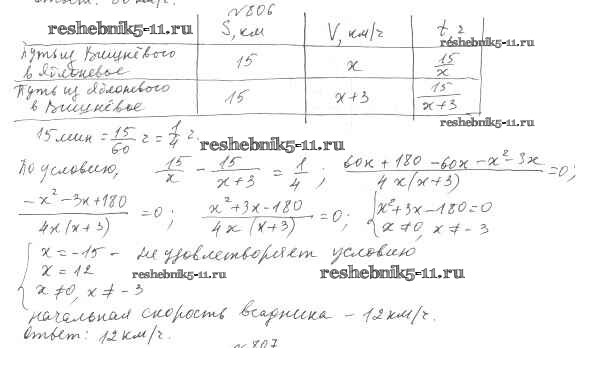 №806
reshebnik5-11.ru
S, км V, км/ч t, ч
reshebnik5-11.ru
Путь из Вишнёвого в Яблоневое 15 x 15/x
Путь из Яблоневого в Вишнёвое 15 x+3 15/(x+3)
reshebnik5-11.ru
15 мин = 15/60 ч = 1/4 ч.
reshebnik5-11.ru
По условию, 15/x - 15/(x+3) = 1/4; (60x+180-60x-x²-3x)/(4x(x+3)) =0;
(-x²-3x+180)/(4x(x+3)) =0; (x²+3x-180)/(4x(x+3)) =0; { x²+3x-180=0
x≠0, x≠-3
{ x=-15 - не удовлетворяет условию
x=12
reshebnik5-11.ru reshebnik5-11.ru
x≠0, x≠-3
начальная скорость всадника - 12км/ч.
Ответ: 12км/ч.